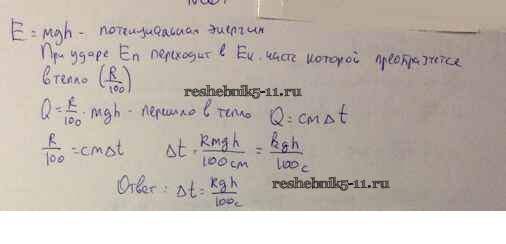 E = mgh - потенциальная энергия
При ударе Eп переходит в Eк. часть которой преобразуется
в тепло (R/100)
reshebnik5-11.ru
Q = R/100 · mgh - перешло в тепло Q = cmΔt
R/100 = cmΔt Δt = Rmgh/100cm = kgh/100c
Ответ: Δt = kgh/100c
reshebnik5-11.ru